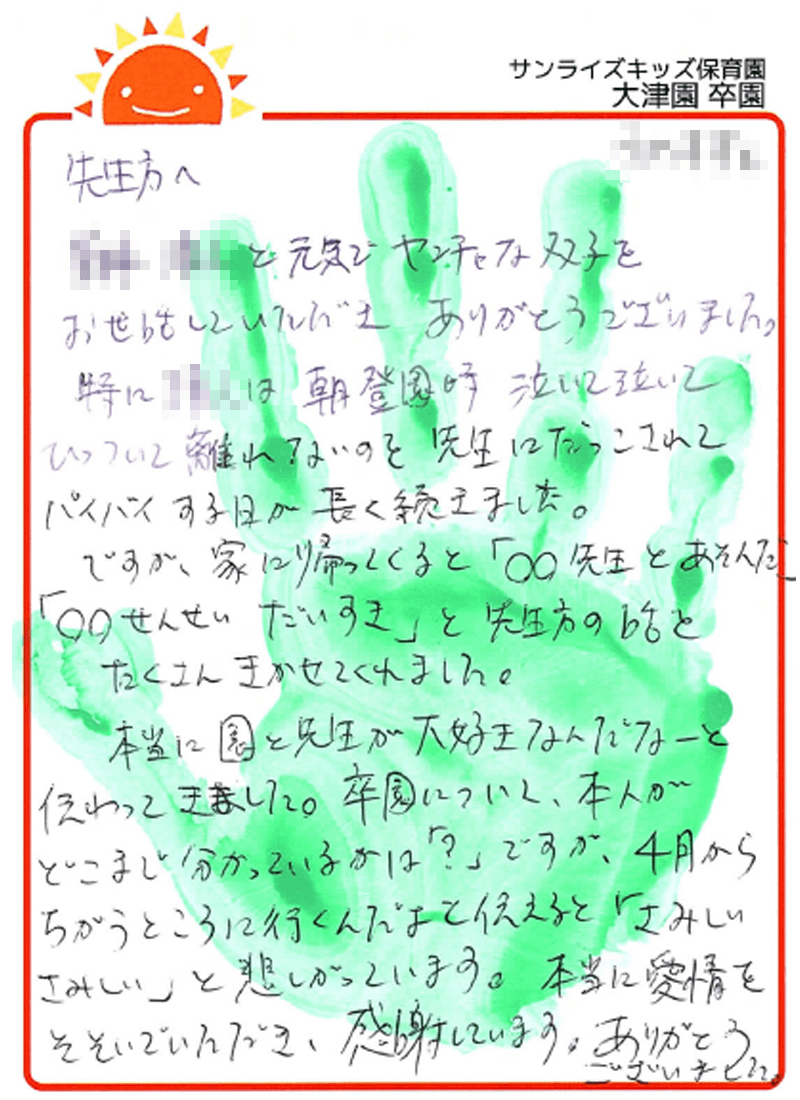 サンライズキッズ保育園
大津園 卒園
先生方へ
と元気で ヤンチャな 双子を
お世話していただき ありがとうございました。
特に は 朝 登園時 泣いて泣いて
ひっついて 離れないのを 先生にだっこされて
バイバイする日が 長く続きました。
ですが、家に帰ってくると「〇〇先生とあそんだ」
「〇〇せんせい だいすき」と 先生方の話を
たくさん きかせてくれました。
本当に 園と先生が 大好きなんだなーと
伝わってきました。卒園について、本人が
どこまで 分かっているかは「?」ですが、4月から
ちがうところに行くんだよと伝えると「さみしい
さみしい」と悲しがっています。 本当に愛情を
そそいでいただき、感謝しています。ありがとう
ございました。